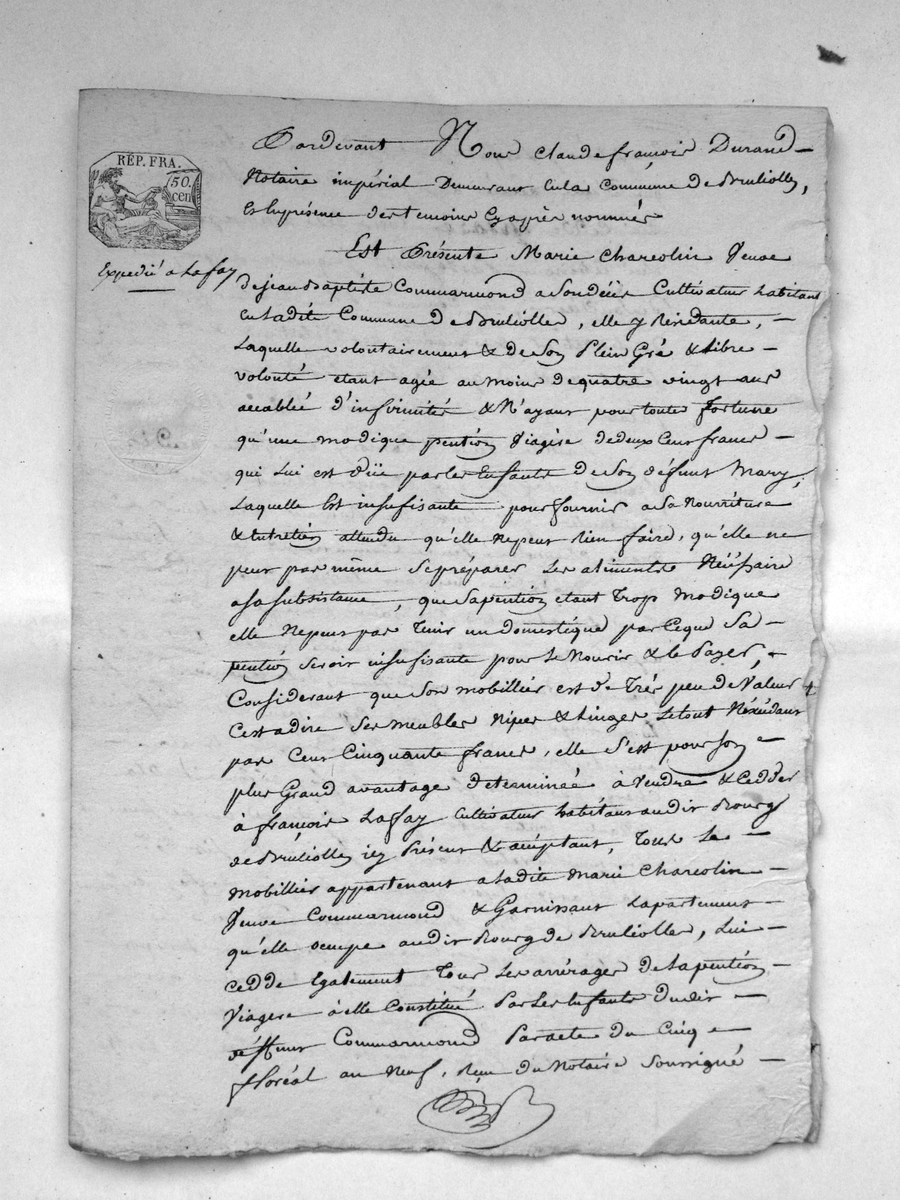 RÉP. FRA.
50.
cen
Expedié a Laffay
Pardevant Nous Claude françois Durand
Notaire impérial Demeurant en la Commune de Brulliolles,
Et En présence des temoins Cy après nommés
Est Présente Marie Charcolin Veuve
de jean Baptiste Commarmond a Son décès Cultivateur habitant
en Ladite Commune de Brulliolles, elle y Résidante,
Laquelle volontairement & de Son Plein Gré & Libre
volonté etant agée au moins de quatre vingt ans
accablée d'infirmités & N'ayant pour toute fortune
qu'une modique pention Viagère de deux Cent francs
qui Lui est düe par les Enfants de Son défunt Mary,
Laquelle Est insufisante pour fournir a Sa Nourriture
& Entretien attendu qu'elle Ne peut Rien faire, qu'elle ne
peut pas même Se préparer Les alimentes Nécéssaire
a Sa Subsistance, que Sa pention etant Trop Modique
elle Ne peut pas Tenir un domestique par Ce que Sa
pention Seroit insufisante pour Le Nourir & le Payer,
Considerant que Son mobillier est de Trés peu de Valeur
C'est adire Ses meubles Nipes & Linges Le tout N'éxédant
pas Cent Cinquante francs, elle S'est pour Son
plus Grand avantage Determinée à Vendre & Cedder
à françois Laffay Cultivateur habitant audit Bourg
de Brulliolles icy Présent & accéptant, Tous Le
Mobillier appartenant a Ladite Marie Charcolin
Veuve Commarmond & Garnissant L'apartement
qu'elle ocupe audit Bourg de Brulliolles, Lui
Cedde Egalement Tous Les arrérages de La pention
Viagere à elle Constitué Par Les Enfants dudit
défunt Commarmond Par acte du Cinq
floréal an Neuf, Reçu du Notaire Soussigné